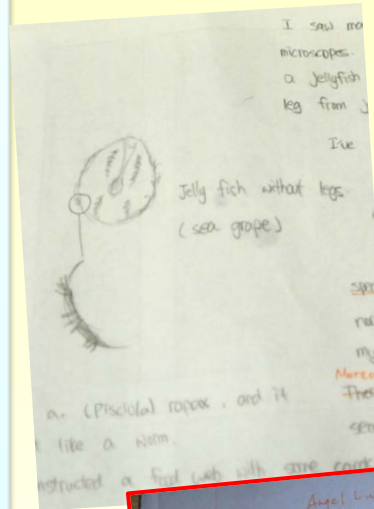 I saw mo
microscopes.
a Jellyfish
leg from J
I've
Jelly fish without legs.
(sea grape)
spe
my
a. (Pisciola) rapax, and it
like a worm.
nstructed a food web with some cards
Angel L